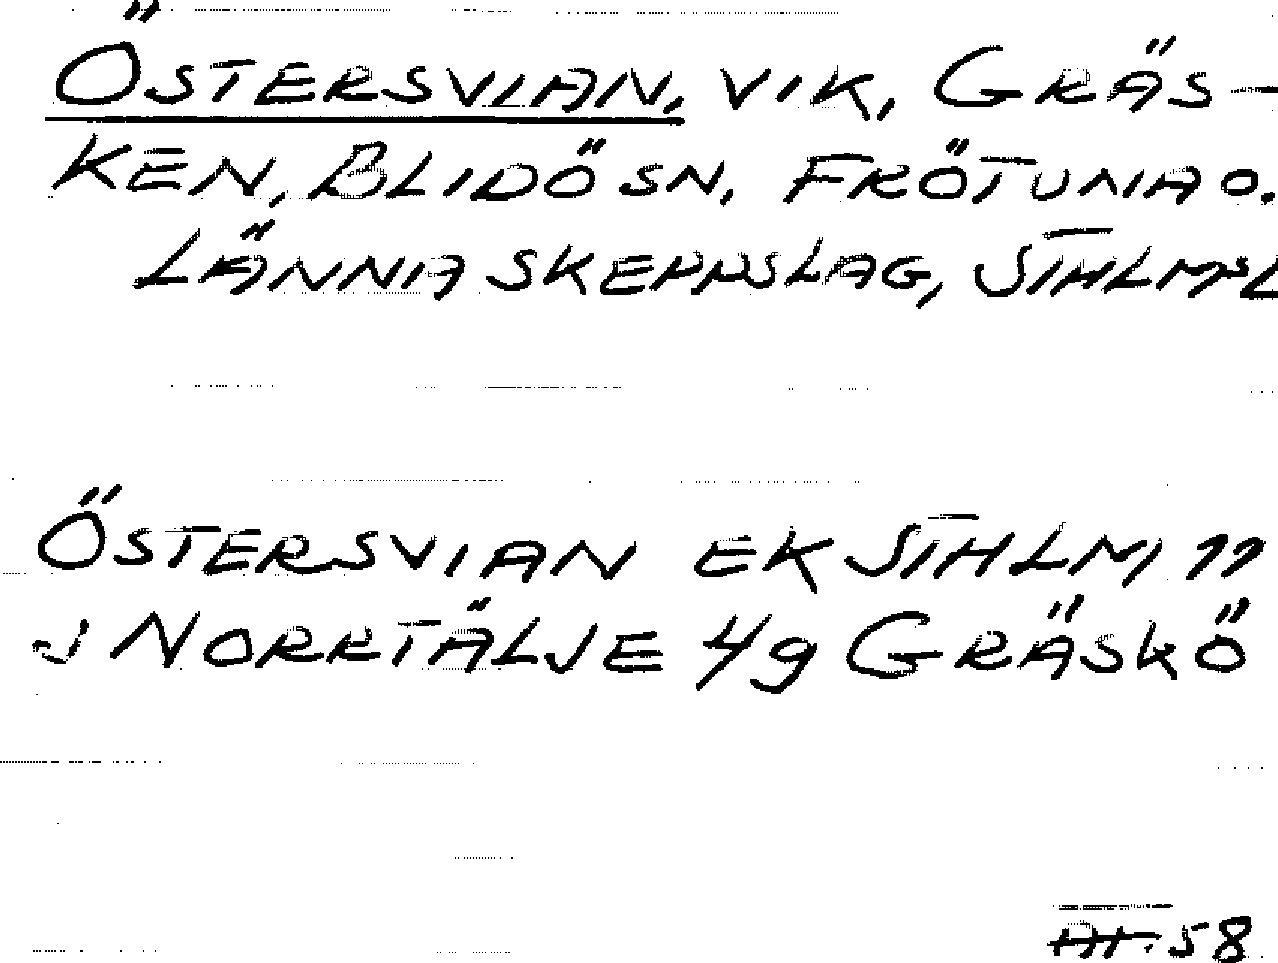 ÖSTERSVIAN, VIK, GRÄS-
KEN, BLIDÖ SN, FRÖTUNA O.
LÄNNA SKEPPSLAG, STHLMSL
ÖSTERSVIAN EK STHLM 11
J NORRTÄLJE 4g GRÄSKÖ
58